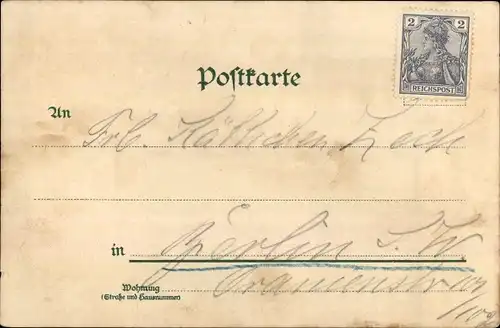 2 2
REICHSPOST
Postkarte
An Frl. Käthchen Zach
in Berlin S. W
Wohnung Oranienstr.
(Straße und Hausnummer) 109